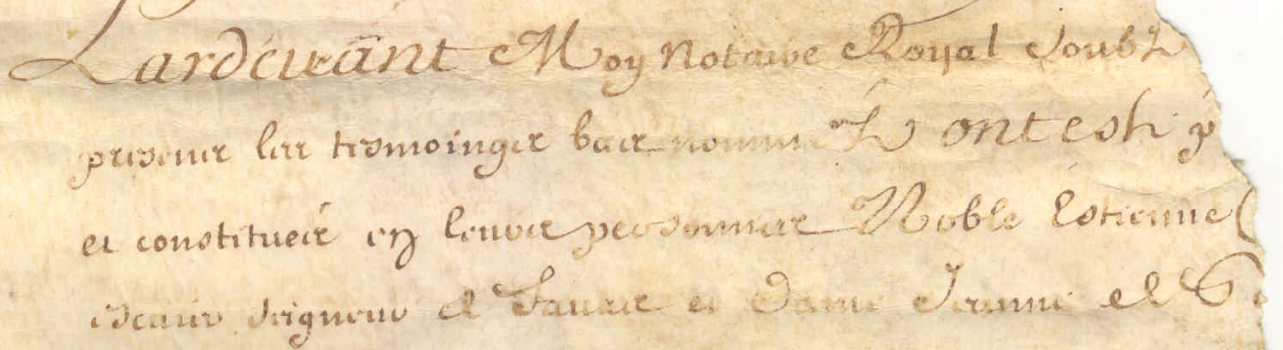 Pardevant Moy Notaire Royal soubz
presence les tesmoinges bas nommes Ont esté p
et constitueés en leurs personnes Noble Estienne
escuier seigneur de et Dame Jeanne de